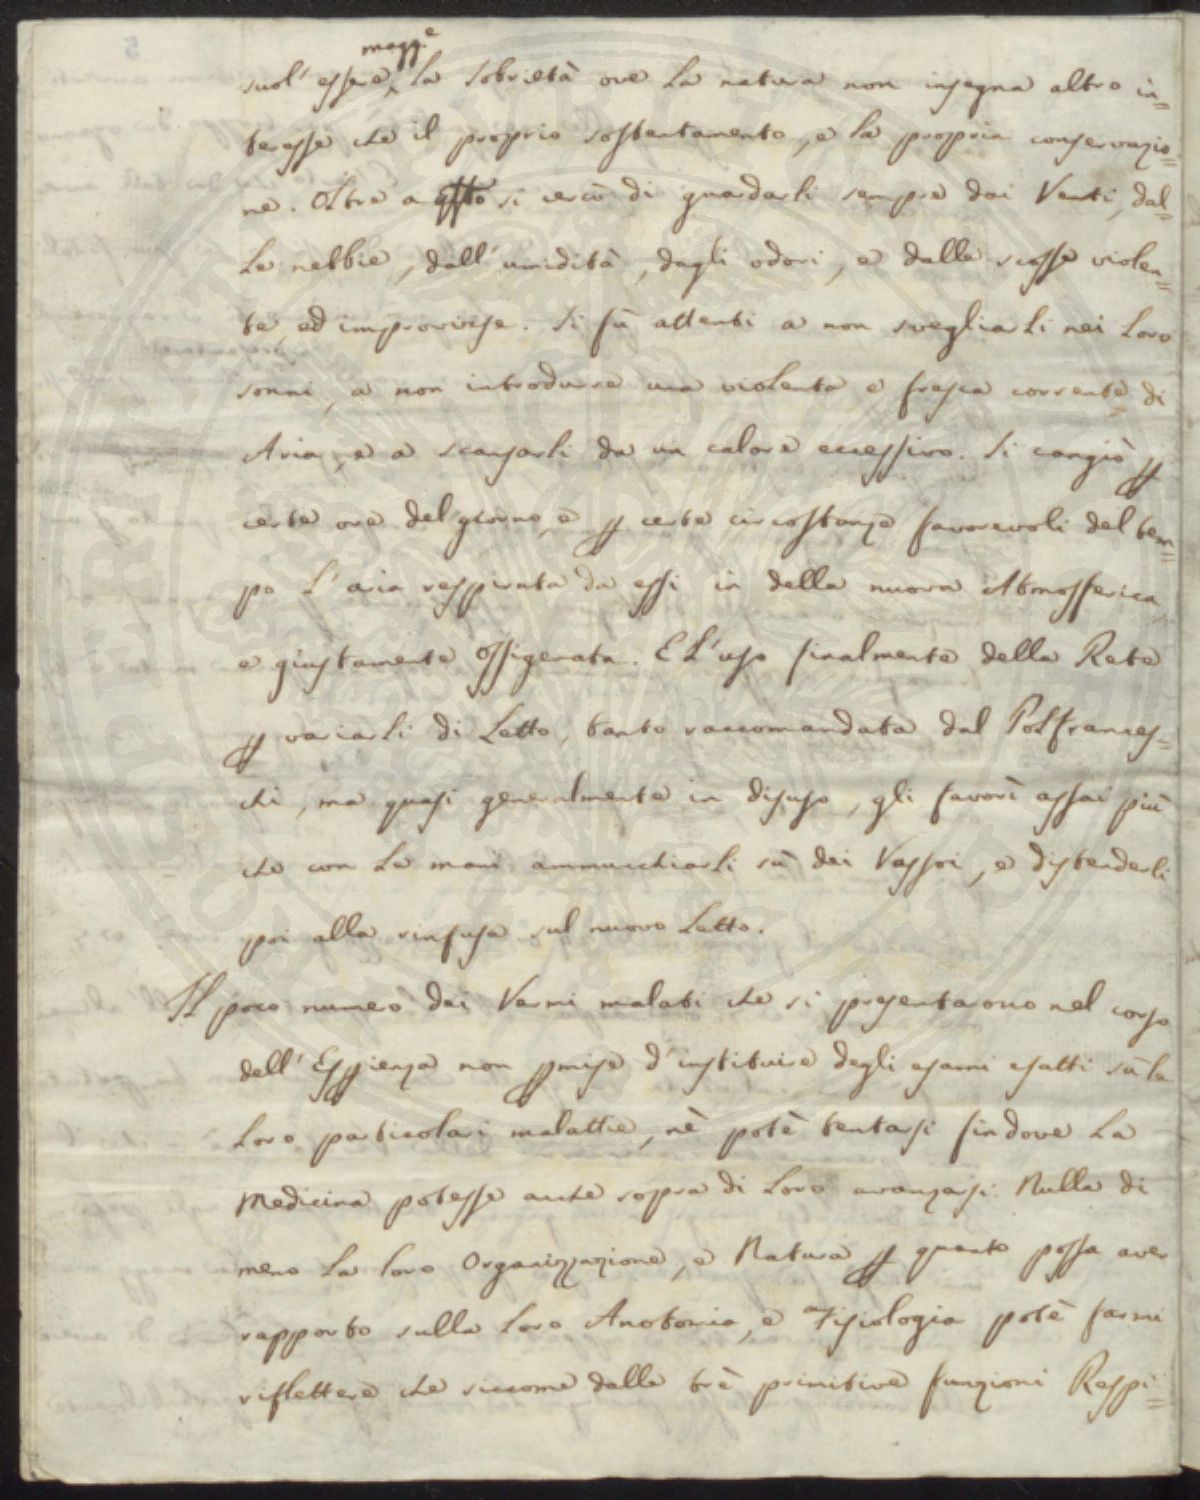 magg.e
suol' essere la sobrietà ove la natura non insegna altro in=
teresse che il proprio sostentamento, e la propria conservazio=
ne. Oltre a questo si cercò di guardarli sempre dai Venti, dal=
le nebbie, dall' umidità, dagli odori, e dalle scosse violen=
te, ed improvvise. Si fù attenti a non svegliarli nei loro
sonni, a non introdurre una violenta e fresca corrente di
Aria, e a scansarli da un calore eccessivo. Si cangiò p
certe ore del giorno, e p certe circostanze favorevoli del tem=
po l' aria respirata da essi in della nuova Atmosferica,
e giustamente Ossigenata. E l' uso finalmente della Rete
p variarli di Letto, tanto raccomandata dal Polfrances=
chi, ma quasi generalmente in disuso, gli favorì assai più
che con le mani ammucchiarli sù dei Vassoi, e distenderli
poi alla rinfusa sul nuovo Letto.
Il poco numero dei Vermi malati che si presentarono nel corso
dell' Esppienza non pmise d' instituire degli esami esatti sù le
loro particolari malattie, nè potè tentarsi fin dove la
Medicina potesse anche sopra di loro avanzarsi. Nulla di
meno la loro Organizzazione, e Natura p quanto possa aver
rapporto sulla loro Anotomia, e Fisiologia potè farmi
riflettere che siccome dalle trè primitive funzioni Respi=